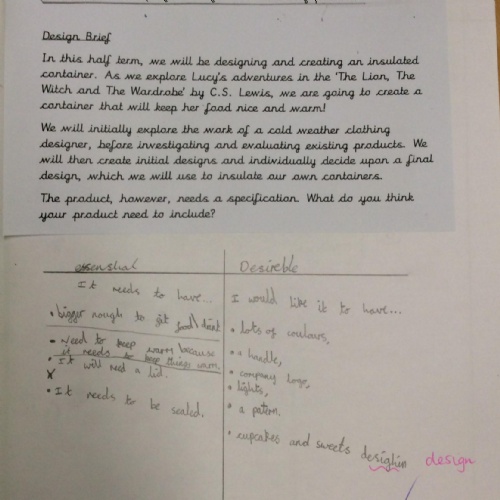 Design Brief
In this half term, we will be designing and creating an insulated
container. As we explore Lucy's adventures in the 'The Lion, The
Witch and The Wardrobe' by C.S. Lewis, we are going to create a
container that will keep her food nice and warm!
We will initially explore the work of a cold weather clothing
designer, before investigating and evaluating existing products. We
will then create initial designs and individually decide upon a final
design, which we will use to insulate our own containers.
The product, however, needs a specification. What do you think
your product need to include?
essenshal
It needs to have...
• bigger nough to fit food/drink
• Need to keep warm because
it needs to keep things warm.
• It will need a lid.
x
• It needs to be sealed.
Desireble
I would like it to have...
• lots of coulours,
• a handle,
• company logo,
• lights,
• a patern.
• cupcakes and sweets desighin design